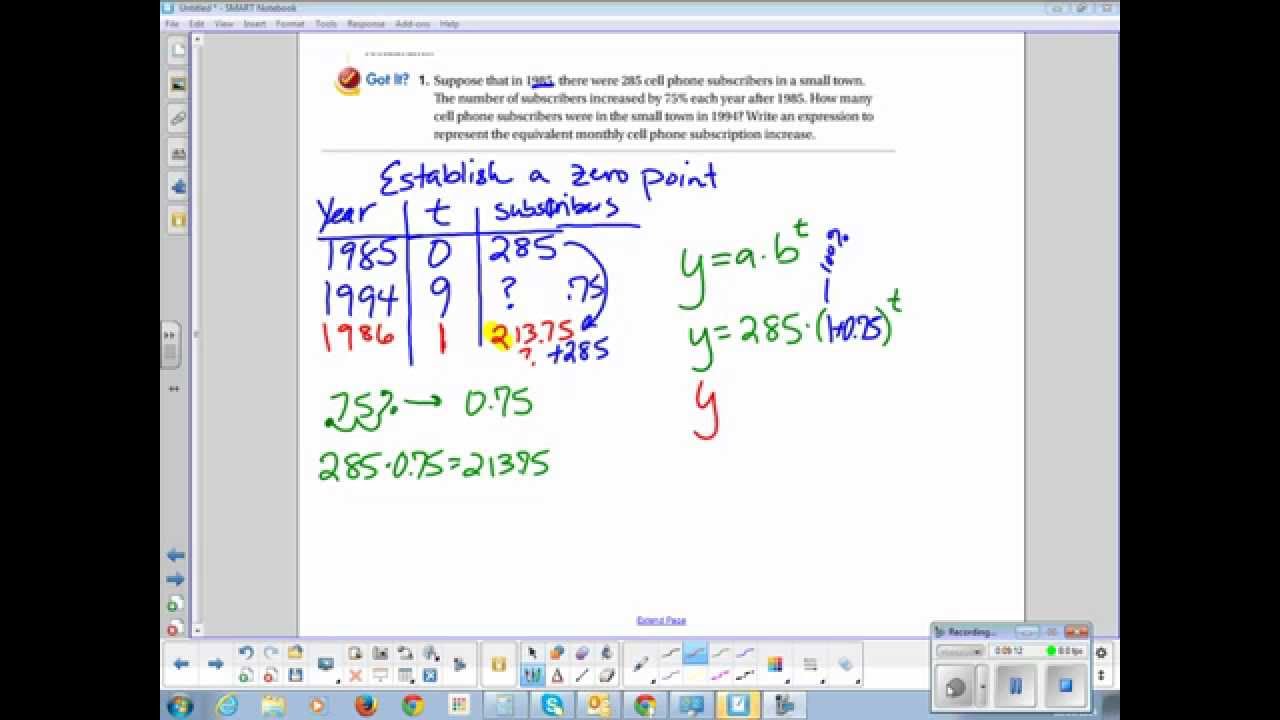 Untitled * - SMART Notebook
File Edit View Insert Format Tools Response Add-ons Help
Got It? 1. Suppose that in 1985, there were 285 cell phone subscribers in a small town.
The number of subscribers increased by 75% each year after 1985. How many
cell phone subscribers were in the small town in 1994? Write an expression to
represent the equivalent monthly cell phone subscription increase.
Establish a zero point
Year t subscribers
1985 0 285
1994 9 ? .75
1986 1 213.75
? +285
.75% → 0.75
285·0.75=21375
y=a·b^t
100%
y=285·(1+0.75)^t
y
Extend Page
Recording...
0:09:12 0.0 fps